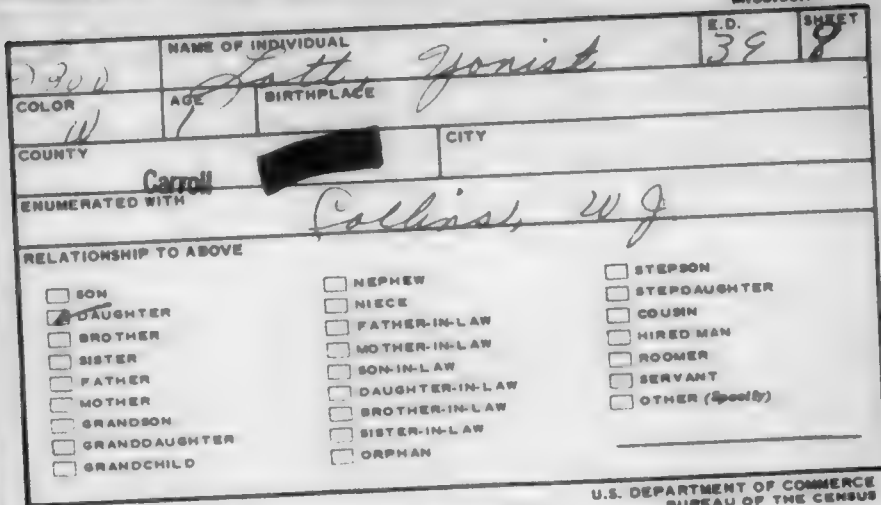 NAME OF INDIVIDUAL E.D. SHEET
Lott, Yonist 39 8
COLOR AGE BIRTHPLACE
W 1
COUNTY CITY
Carroll
ENUMERATED WITH
Collins, W J
RELATIONSHIP TO ABOVE
SON
DAUGHTER
BROTHER
SISTER
FATHER
MOTHER
GRANDSON
GRANDDAUGHTER
GRANDCHILD
NEPHEW
NIECE
FATHER-IN-LAW
MOTHER-IN-LAW
SON-IN-LAW
DAUGHTER-IN-LAW
BROTHER-IN-LAW
SISTER-IN-LAW
ORPHAN
STEPSON
STEPDAUGHTER
COUSIN
HIRED MAN
ROOMER
SERVANT
OTHER (Specify)
U.S. DEPARTMENT OF COMMERCE
BUREAU OF THE CENSUS